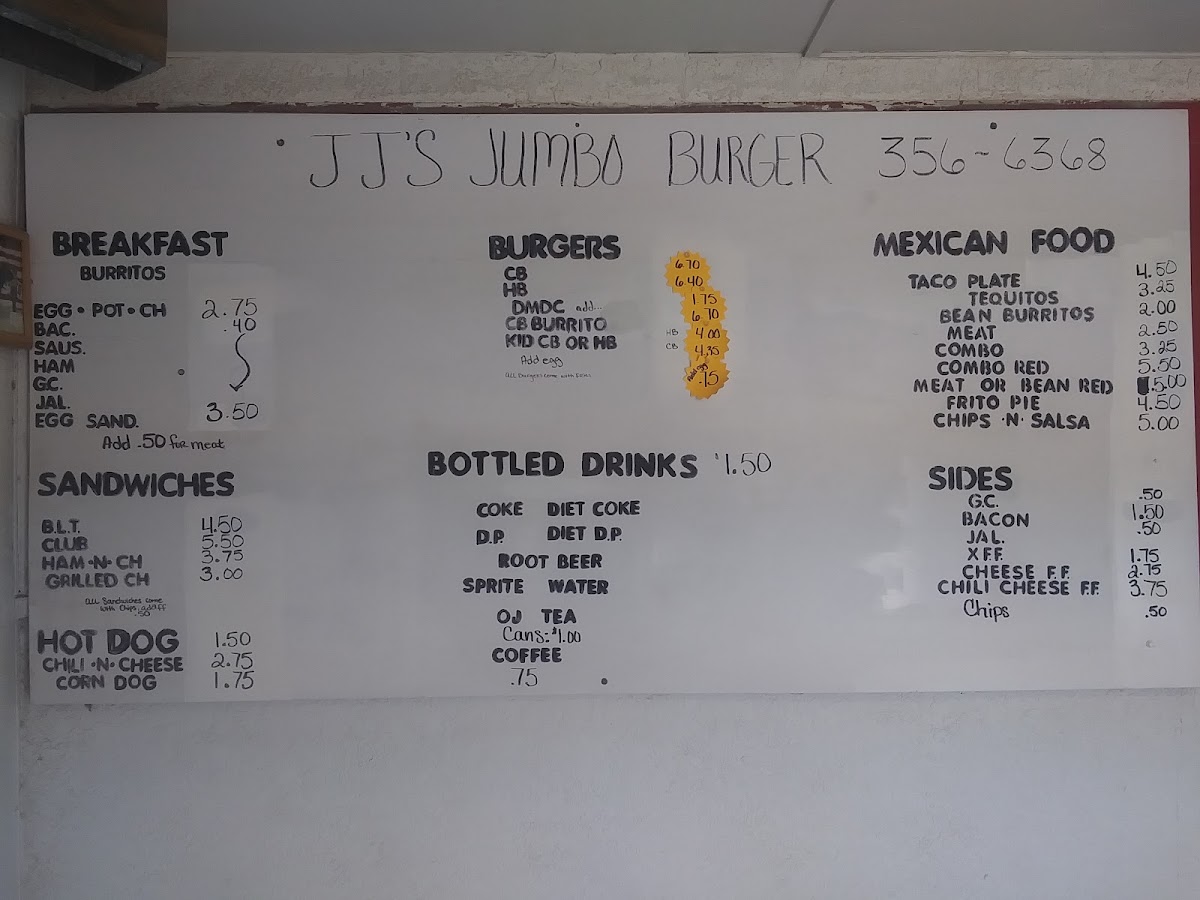 JJ'S JUMBO BURGER 356-6368
BREAKFAST
BURRITOS
EGG • POT • CH 2.75
BAC. .40
SAUS.
HAM
G.C.
JAL.
EGG SAND. 3.50
Add .50 for meat
SANDWICHES
B.L.T. 4.50
CLUB 5.50
HAM •N• CH 3.75
GRILLED CH 3.00
All Sandwiches come
with Chips, add FF
.50
HOT DOG 1.50
CHILI •N• CHEESE 2.75
CORN DOG 1.75
BURGERS
CB 6.70
HB 6.40
DMDC add... 1.75
CB BURRITO 6.70
KID CB OR HB HB 4.00
CB 4.35
Add egg Add egg .75
All Burgers come with
BOTTLED DRINKS $1.50
COKE DIET COKE
D.P. DIET D.P.
ROOT BEER
SPRITE WATER
OJ TEA
Cans: $1.00
COFFEE
.75
MEXICAN FOOD
TACO PLATE 4.50
TEQUITOS 3.25
BEAN BURRITOS 2.00
MEAT 2.50
COMBO 3.25
COMBO RED 5.50
MEAT OR BEAN RED 5.00
FRITO PIE 4.50
CHIPS •N• SALSA 5.00
SIDES
G.C. .50
BACON 1.50
JAL. .50
X F.F. 1.75
CHEESE F.F. 2.75
CHILI CHEESE F.F. 3.75
Chips .50